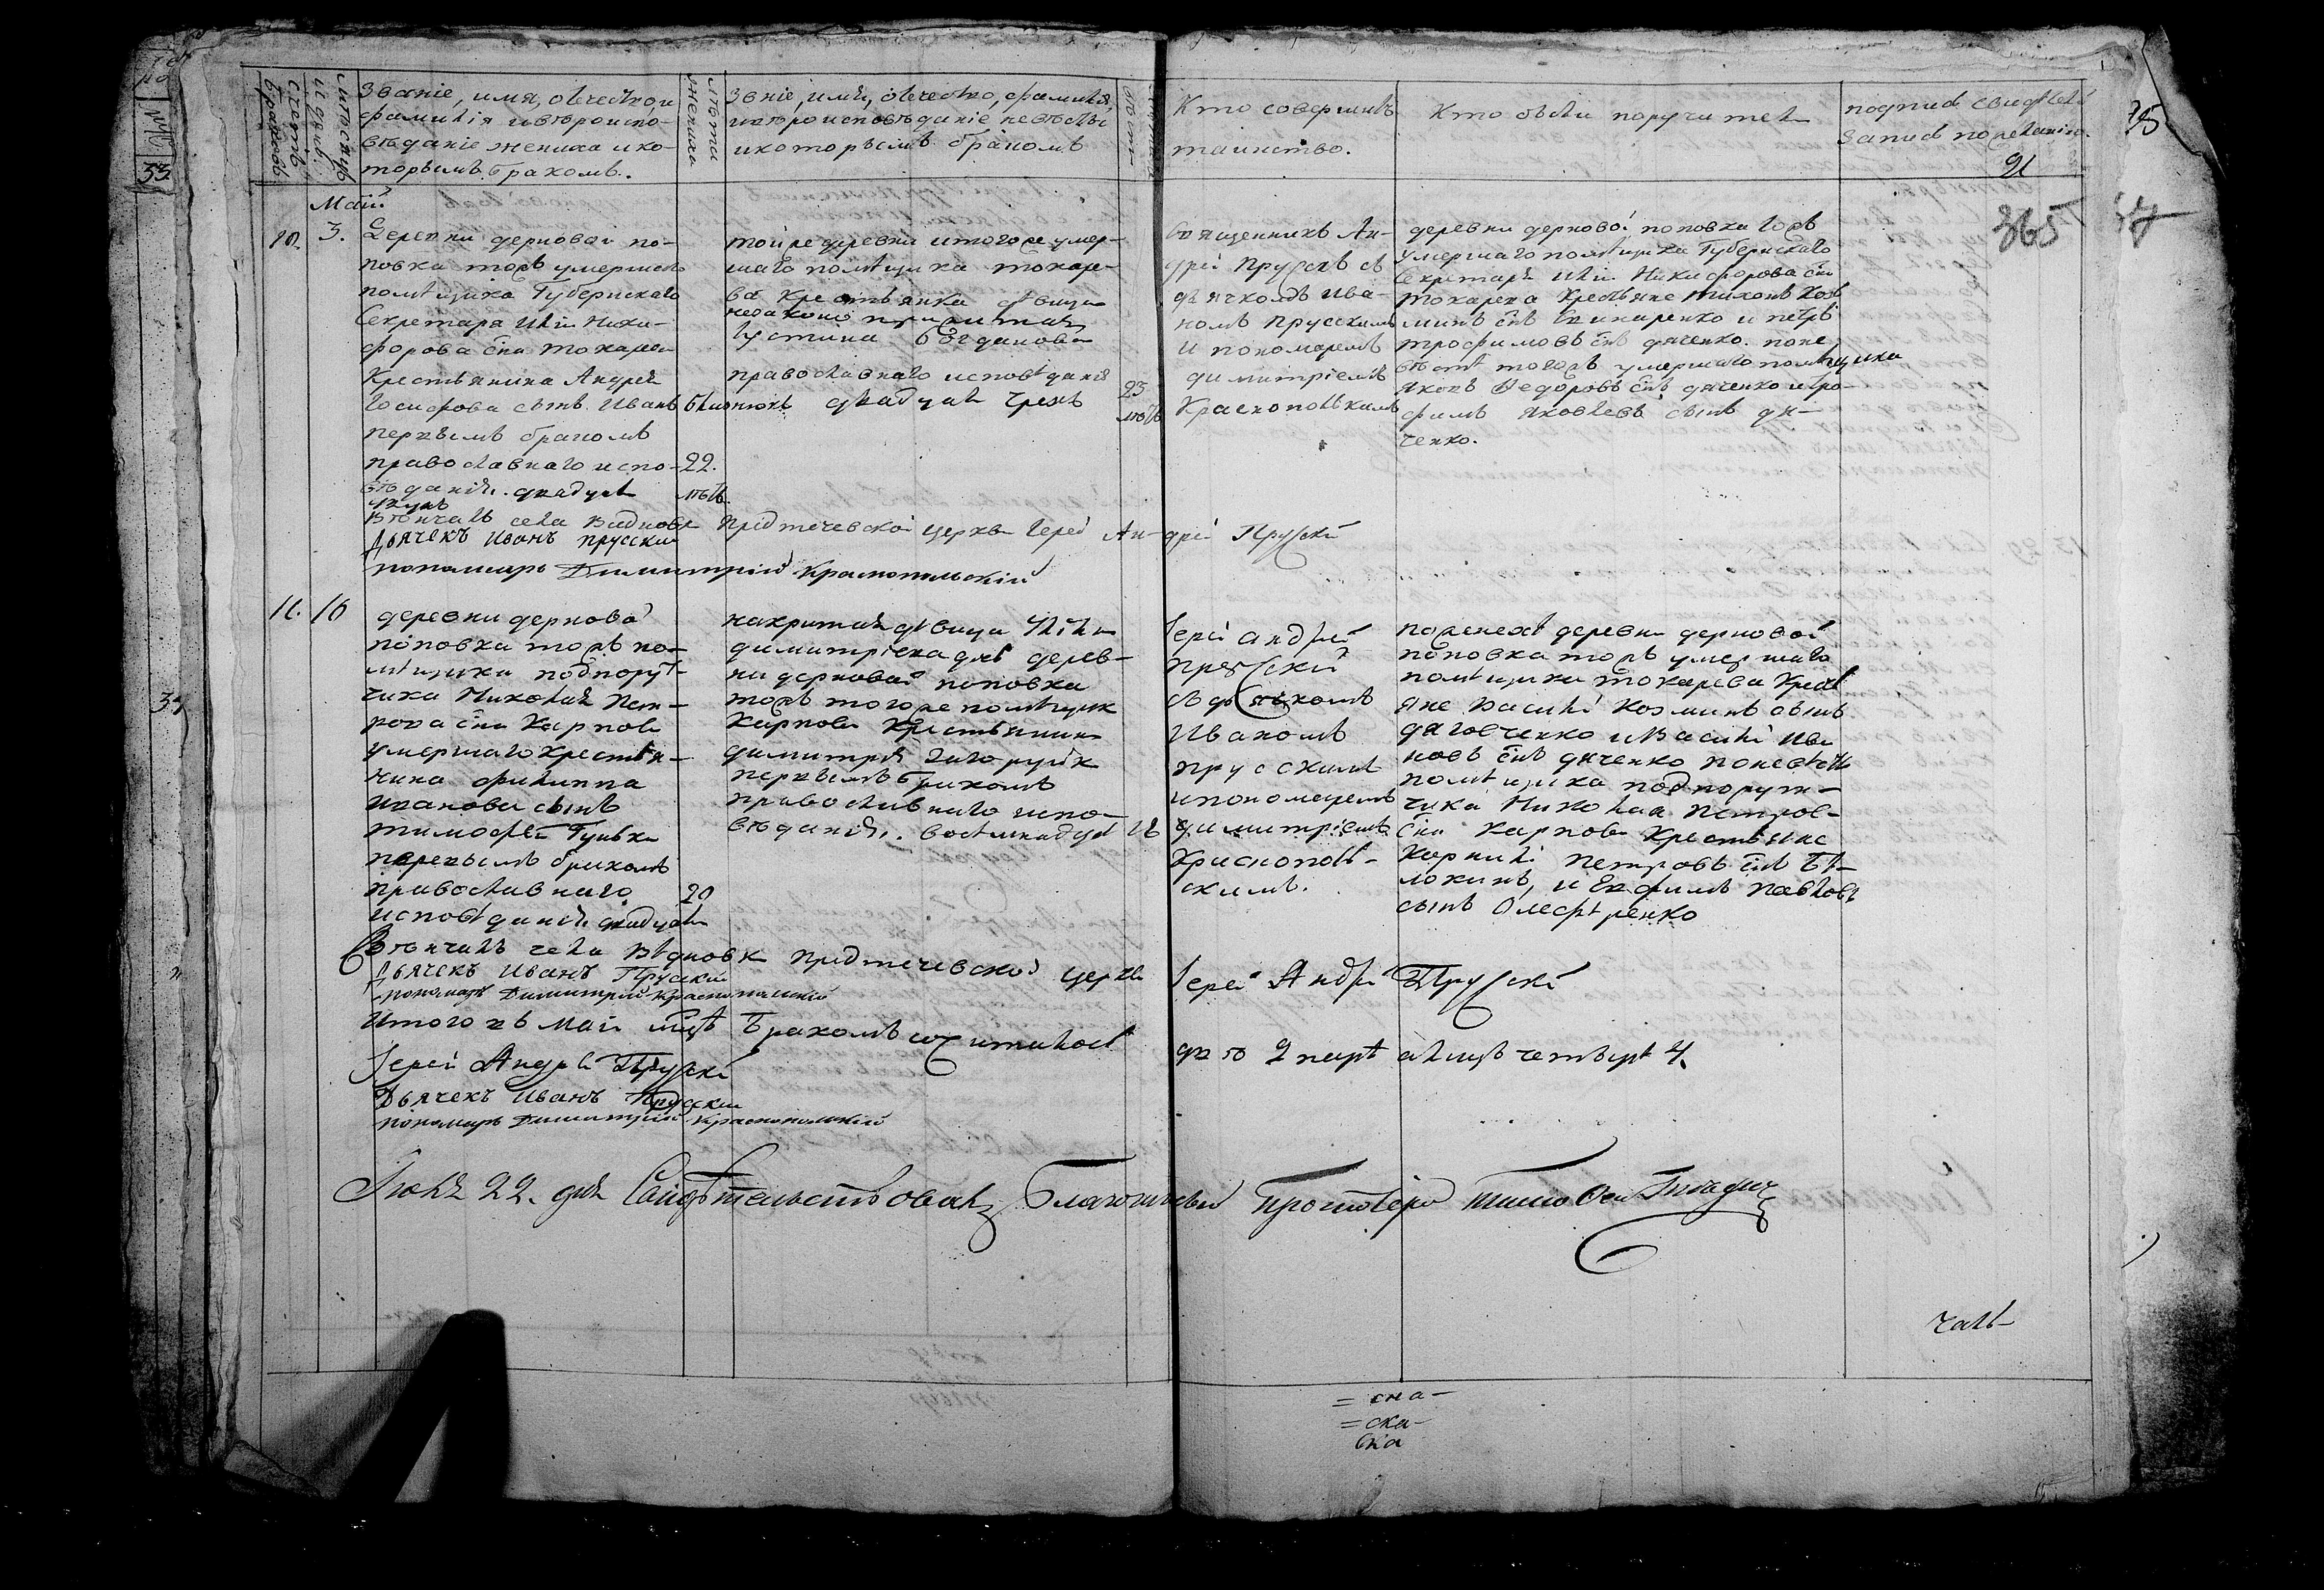 счетъ браковъ
мѣсяцъ и день
Званіе, имя, отчество, и
фамилія и вѣроиспо-
вѣданіе жениха и ко-
торымъ бракомъ.
лѣта жениха
Званіе, имя, отчество, фамилія,
и вѣроисповѣданіе невѣсты
и которымъ бракомъ
Кто совершилъ
таинство.
Кто были поручители
подписъ свидѣтелей
записъ по желанію.
91
75
33
365
Май
10. 3.
Деревни дерновой по-
повка тожъ умершаго
помѣщика Губернскаго
Секретара Иліи Ники-
форова сна Токарева
Крестьянина Андрея
сынъ Иванъ
первымъ бракомъ
православнаго испо-
вѣданія. двадцать
22.
лѣтъ
тойже деревни и тогоже умер-
шаго помѣщика токаре-
ва Крестьянка дѣвица
Устина Богданова
православнаго исповѣданія
двадцать трехъ
23
лѣтъ
священникъ Ан-
дрей Прускій съ
дьячкомъ Ива-
номъ Прусскимъ
и пономаремъ
димитріемъ
Краснопольскимъ
деревни дерновой поповка тожъ
умершаго помѣщика Губернскаго
Секретаря Иліи Никифорова сна
токарева Крестьяне Тихонъ Козь
минъ снъ и петръ
трофимовъ снъ дяченко. поне
вѣстѣ тогожъ умершаго помѣщика
Яковъ Федоровъ снъ дяченко и тро-
фимъ Яковлевъ сынъ дя-
ченко.
Вѣнчалъ села Видновки Предтечевской церкви Іерей Ан-дрей Прускій
Дьячекъ Иванъ Прусскій
пономарь Димитрій Краснопольскій
11. 16
деревни дерновой
поповка тожъ по-
мѣщика подпору-
чика Николая Пет-
рова сна Карпова
умершаго крестья-
нина филиппа
Иванова сынъ
тимофей Гунька
первымъ бракомъ
православнаго
исповѣданія двадцать
20
дѣвица
димитріева дерев-
ни дерновой поповка
тожъ тогоже помѣщика
Карпова Крестьянина
димитрія
первымъ бракомъ
православнаго испо-
вѣданія. восемнадцать 18
Іерей Андрей
Прускій
съ дьячкомъ
Иваномъ
прусскимъ
и пономаремъ
димитріемъ
Краснополь-
скимъ.
по женихѣ деревни дерновой
поповка тожъ умершаго
помѣщика токарева Крестья
яне Василій Козминъ сынъ
и Василій Ива
новъ снъ дяченко по невѣстѣ
помѣщика подпору-
чика Николая Петров-
сна Карпова Крестьяне
Корнилій Петровъ снъ Бѣ-
локинъ, и Евфимъ Павловъ
сынъ Олефѣренко
Вѣнчалъ села Видновки Предтечевской церкви Іерей Андрей Прускій
Дьячекъ Иванъ Прускій
пономарь Димитрій Краснопольскій
Итого въ маѣ мцѣ бракомъ сочиталось два 2 пары а лицъ четыре 4.
Іерей Андрей Прускій
Дьячекъ Иванъ Прусскій
пономарь Димитрій Краснопольскій
Іюля 22. дня Свидѣтельствовалъ Благочинный Протоіерей
=сна-
=ска-
вка